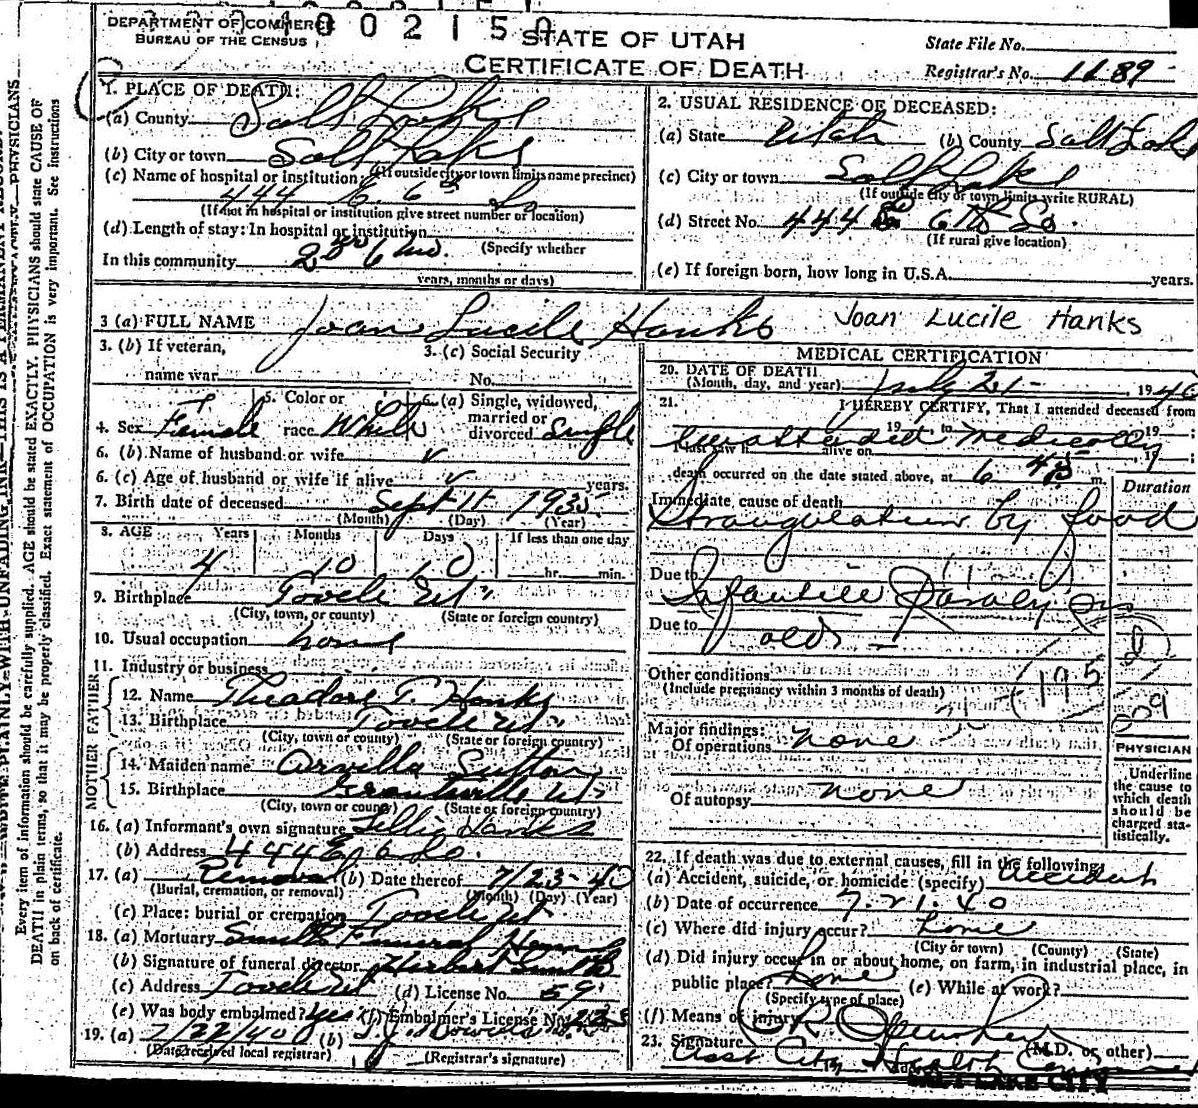 DEPARTMENT OF COMMERCE
BUREAU OF THE CENSUS
0 0 2 1 5
STATE OF UTAH
CERTIFICATE OF DEATH
State File No.
Registrar's No. 1189
1. PLACE OF DEATH:
(a) County Salt Lake
(b) City or town Salt Lake
(If outside city or town limits name precinct)
(c) Name of hospital or institution:
444 E. 6th So
(If not in hospital or institution give street number or location)
(d) Length of stay: In hospital or institution
(Specify whether
In this community 2 yr 6 mo.
years, months or days)
2. USUAL RESIDENCE OF DECEASED:
(a) State Utah (b) County Salt Lake
(c) City or town Salt Lake
(If outside city or town limits write RURAL)
(d) Street No. 444 6th So.
(If rural give location)
(e) If foreign born, how long in U.S.A. years.
3 (a) FULL NAME Joan Lucile Hanks Joan Lucile Hanks
3. (b) If veteran,
name war
3. (c) Social Security
No.
4. Sex Female
5. Color or
race White
6. (a) Single, widowed,
married or
divorced Single
6. (b) Name of husband or wife
6. (c) Age of husband or wife if alive years.
7. Birth date of deceased Sept 11 1935
(Month) (Day) (Year)
8. AGE Years Months Days If less than one day
4 10 10 hr. min.
9. Birthplace Tooele Ut
(City, town, or county) (State or foreign country)
10. Usual occupation home
11. Industry or business
FATHER
12. Name Theadore T. Hanks
13. Birthplace Tooele Ut
(City, town or county) (State or foreign country)
MOTHER
14. Maiden name Arvilla Sutton
15. Birthplace Grantsville Ut
(City, town or county) (State or foreign country)
16. (a) Informant's own signature Lillie Hanks
(b) Address 444 E 6 So.
17. (a) Removal (b) Date thereof 7/23-40
(Burial, cremation, or removal) (Month) (Day) (Year)
(c) Place: burial or cremation Tooele Ut
18. (a) Mortuary Smith Funeral Home
(b) Signature of funeral director Herbert Smith
(c) Address Tooele Ut (d) License No. 59
(e) Was body embalmed? yes (f) Embalmer's License No.
19. (a) 7/22/40 (b)
(Date received local registrar) (Registrar's signature)
MEDICAL CERTIFICATION
20. DATE OF DEATH
(Month, day, and year) July 21- , 1940
21. I HEREBY CERTIFY, That I attended deceased from
19 , to 19 ;
unattended medically
I last saw h alive on 19 ;
death occurred on the date stated above, at 6 45 m.
Duration
Immediate cause of death
Strangulation by food
Due to
Infantile Paralysis
Due to old -
Other conditions
(Include pregnancy within 3 months of death)
195
Major findings:
Of operations none
Of autopsy none
PHYSICIAN
Underline
the cause to
which death
should be
charged sta-
tistically.
22. If death was due to external causes, fill in the following
(a) Accident, suicide, or homicide (specify) accident
(b) Date of occurrence 7.21.40
(c) Where did injury occur? home
(City or town) (County) (State)
(d) Did injury occur in or about home, on farm, in industrial place, in
public place? home (e) While at work?
(Specify type of place)
(f) Means of injury
23. Signature (M.D. or other)
Asst City Health
SALT LAKE CITY
Every item of information should be carefully supplied. AGE should be stated EXACTLY. PHYSICIANS should state CAUSE OF
DEATH in plain terms, so that it may be properly classified. Exact statement of OCCUPATION is very important. See instructions
on back of certificate.